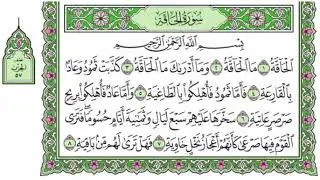 سُورَةُ الْحَاقَّةِ
بِسْمِ اللَّهِ الرَّحْمَٰنِ الرَّحِيمِ
الْحَاقَّةُ ١ مَا الْحَاقَّةُ ٢ وَمَا أَدْرَىٰكَ مَا الْحَاقَّةُ ٣ كَذَّبَتْ ثَمُودُ وَعَادٌ
بِالْقَارِعَةِ ٤ فَأَمَّا ثَمُودُ فَأُهْلِكُوا بِالطَّاغِيَةِ ٥ وَأَمَّا عَادٌ فَأُهْلِكُوا بِرِيحٍ
صَرْصَرٍ عَاتِيَةٍ ٦ سَخَّرَهَا عَلَيْهِمْ سَبْعَ لَيَالٍ وَثَمَٰنِيَةَ أَيَّامٍ حُسُومًا فَتَرَى
الْقَوْمَ فِيهَا صَرْعَىٰ كَأَنَّهُمْ أَعْجَازُ نَخْلٍ خَاوِيَةٍ ٧ فَهَلْ تَرَىٰ لَهُم مِّن بَاقِيَةٍ ٨
الحزب
٥٧